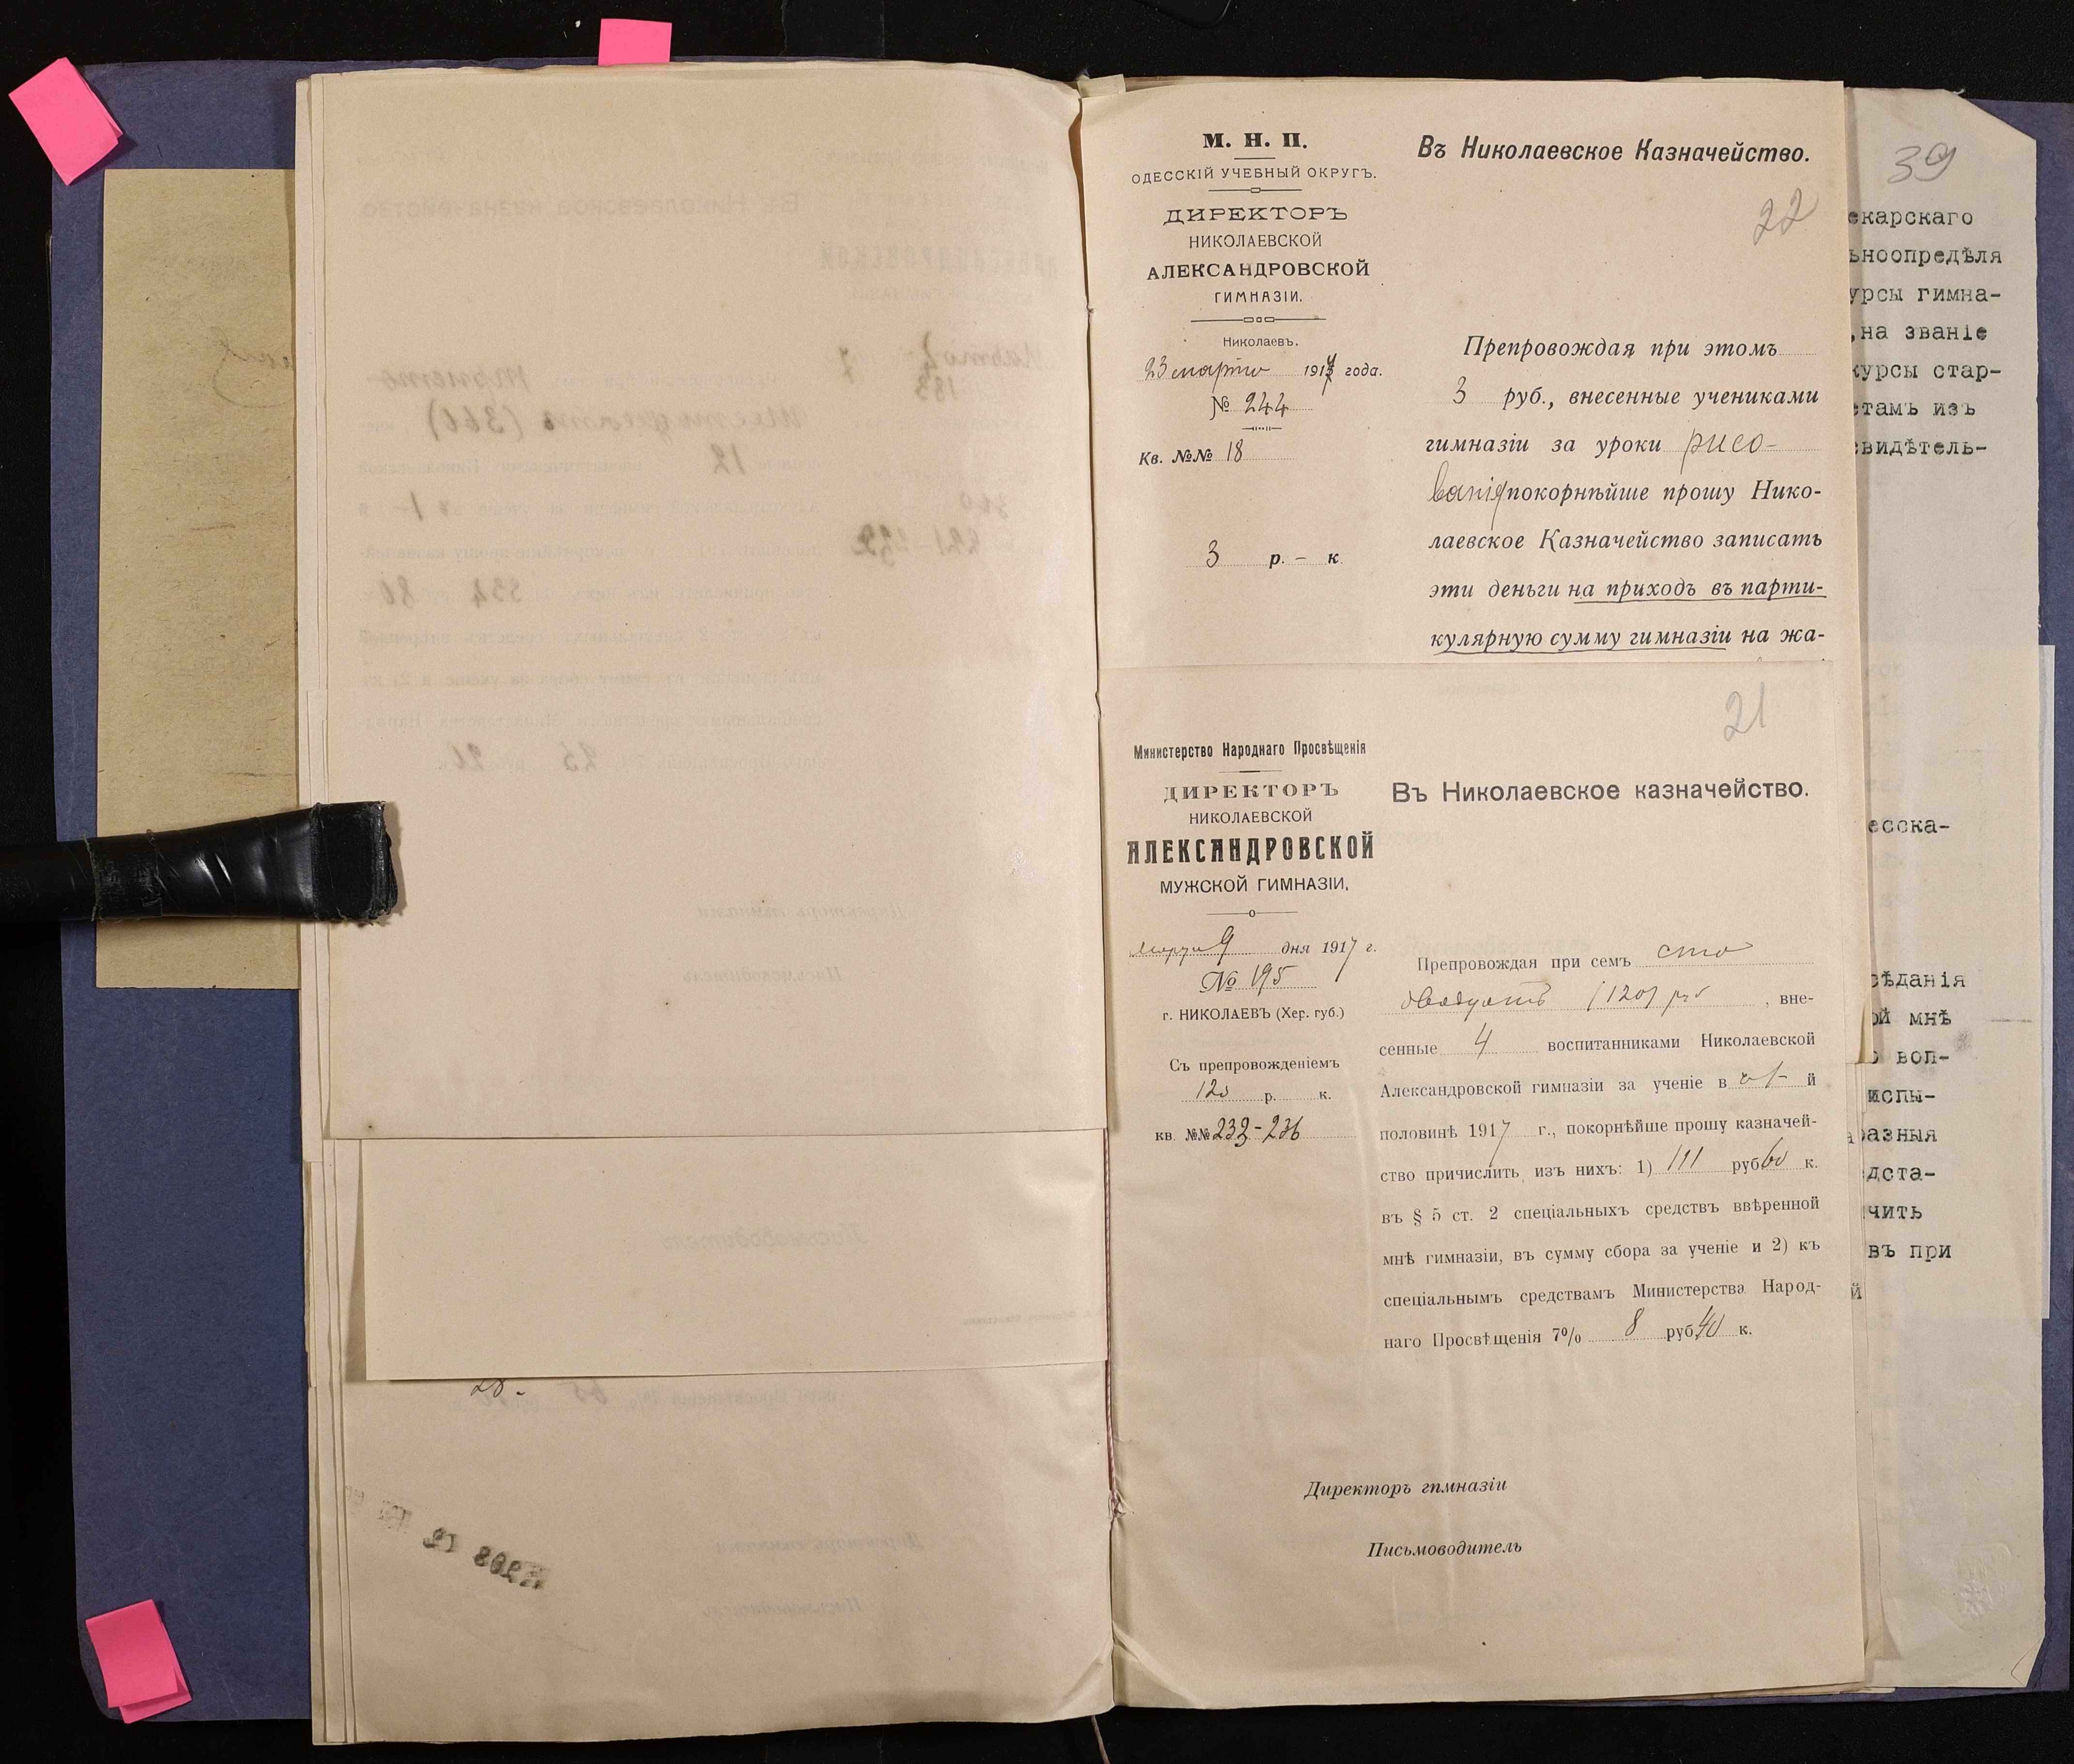 М. Н. П.
ОДЕССКІЙ УЧЕБНЫЙ ОКРУГЪ.
ДИРЕКТОРЪ
НИКОЛАЕВСКОЙ
АЛЕКСАНДРОВСКОЙ
ГИМНАЗІИ.
Николаевъ.
23 марта 1917 года.
№ 244
Кв. №№ 18
3 р. – к.
Въ Николаевское Казначейство.
22
Препровождая при этомъ
3 руб., внесенные учениками
гимназіи за уроки рисо-
ванія покорнѣйше прошу Нико-
лаевское Казначейство записать
эти деньги на приходъ въ парти-
кулярную сумму гимназіи на жа-
21
Министерство Народнаго Просвѣщенія
ДИРЕКТОРЪ
НИКОЛАЕВСКОЙ
АЛЕКСАНДРОВСКОЙ
МУЖСКОЙ ГИМНАЗІИ.
Марта 9 дня 1917 г.
№ 195
г. НИКОЛАЕВЪ (Хер. губ.)
Съ препровожденіемъ
120 р. к.
кв. №№ 233-236
Въ Николаевское казначейство.
Препровождая при семъ сто
двадцать (120) руб , вне-
сенные 4 воспитанниками Николаевской
Александровской гимназіи за ученіе в 1- й
половинѣ 1917 г., покорнѣйше прошу казначей-
ство причислить изъ нихъ: 1) 111 руб 60 к.
въ § 5 ст. 2 спеціальныхъ средствъ ввѣренной
мнѣ гимназіи, въ сумму сбора за ученіе и 2) къ
спеціальнымъ средствамъ Министерства Народ-
наго Просвѣщенія 7% 8 руб 40 к.
Директоръ гимназіи
Письмоводитель
39
екарскаго
ьноопредѣля
урсы гимна-
,на званіе
курсы стар-
етамъ изъ
свидѣтель-
есска-
сѣданія
ой мнѣ
воп-
испы-
разныя
дста-
чить
въ при
й